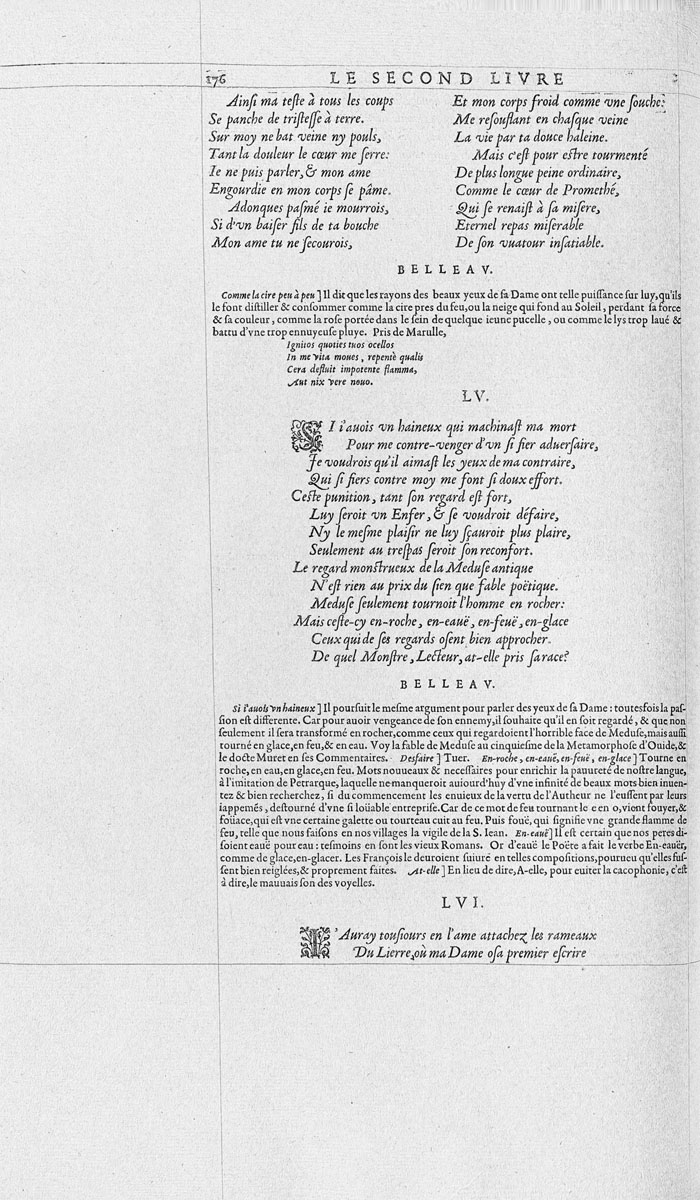 176 LE SECOND LIVRE
Ainſi ma teſte à tous les coups
Se panche de triſteſſe à terre.
Sur moy ne bat veine ny pouls,
Tant la douleur le cœur me ſerre:
Ie ne puis parler, & mon ame
Engourdie en mon corps ſe pâme.
Adonques paſmé ie mourrois,
Si d'vn baiſer fils de ta bouche
Mon ame tu ne ſecourois,
Et mon corps froid comme vne ſouche:
Me reſouflant en chaſque veine
La vie par ta douce haleine.
Mais c'eſt pour eſtre tourmenté
De plus longue peine ordinaire,
Comme le cœur de Promethé,
Qui ſe renaiſt à ſa miſere,
Eternel repas miſerable
De ſon vautour inſatiable.
BELLEAV.
Comme la cire peu à peu ] Il dit que les rayons des beaux yeux de ſa Dame ont telle puiſſance ſur luy, qu'ils
le font diſtiller & conſommer comme la cire pres du feu, ou la neige qui fond au Soleil, perdant ſa force
& ſa couleur, comme la roſe portée dans le ſein de quelque ieune pucelle, ou comme le lys trop laué &
battu d'vne trop ennuyeuſe pluye. Pris de Marulle,
Ignitos quoties tuos ocellos
In me vita moues, repentè qualis
Cera defluit impotente flamma,
Aut nix vere nouo.
LV.
SI i'auois vn haineux qui machinaſt ma mort
Pour me contre-venger d'vn ſi fier aduerſaire,
Je voudrois qu'il aimaſt les yeux de ma contraire,
Qui ſi fiers contre moy me font ſi doux effort.
Ceſte punition, tant ſon regard eſt fort,
Luy ſeroit vn Enfer, & ſe voudroit défaire,
Ny le meſme plaiſir ne luy ſçauroit plus plaire,
Seulement au treſpas ſeroit ſon reconfort.
Le regard monſtrueux de la Meduſe antique
N'eſt rien au prix du ſien que fable poëtique.
Meduſe ſeulement tournoit l'homme en rocher:
Mais ceſte-cy en-roche, en-eauë, en-feuë, en-glace
Ceux qui de ſes regards oſent bien approcher.
De quel Monſtre, Lecteur, at-elle pris ſa race?
BELLEAV.
Si i'auois vn haineux ] Il pourſuit le meſme argument pour parler des yeux de ſa Dame : toutesfois la paſ-
ſion eſt differente. Car pour auoir vengeance de ſon ennemy, il ſouhaite qu'il en ſoit regardé, & que non
ſeulement il ſera transformé en rocher, comme ceux qui regardoient l'horrible face de Meduſe, mais auſſi
tourné en glace, en feu, & en eau. Voy la fable de Meduſe au cinquieſme de la Metamorphoſe d'Ouide, &
le docte Muret en ſes Commentaires. Desfaire ] Tuer. En-roche, en-eauë, en-feuë, en-glace ] Tourne en
roche, en eau, en glace, en feu. Mots nouueaux & neceſſaires pour enrichir la pauureté de noſtre langue,
à l'imitation de Petrarque, laquelle ne manqueroit auiourd'huy d'vne infinité de beaux mots bien inuen-
tez & bien recherchez, ſi du commencement les enuieux de la vertu de l'Autheur ne l'euſſent par leurs
iappemés, deſtourné d'vne ſi loüable entrepriſe. Car de ce mot de feu tournant le e en o, vient fouyer, &
foüace, qui eſt vne certaine galette ou tourteau cuit au feu. Puis fouë, qui ſignifie vne grande flamme de
feu, telle que nous faiſons en nos villages la vigile de la S. Iean. En-eauë ] Il eſt certain que nos peres di-
ſoient eauë pour eau : teſmoins en ſont les vieux Romans. Or d'eauë le Poëte a fait le verbe En-eauër,
comme de glace, en-glacer. Les François le deuroient ſuiure en telles compoſitions, pourueu qu'elles fuſ-
ſent bien reiglées, & proprement faites. At-elle ] En lieu de dire, A-elle, pour euiter la cacophonie, c'eſt
à dire, le mauuais ſon des voyelles.
LVI.
I'Auray touſiours en l'ame attachez les rameaux
Du Lierre, où ma Dame oſa premier eſcrire